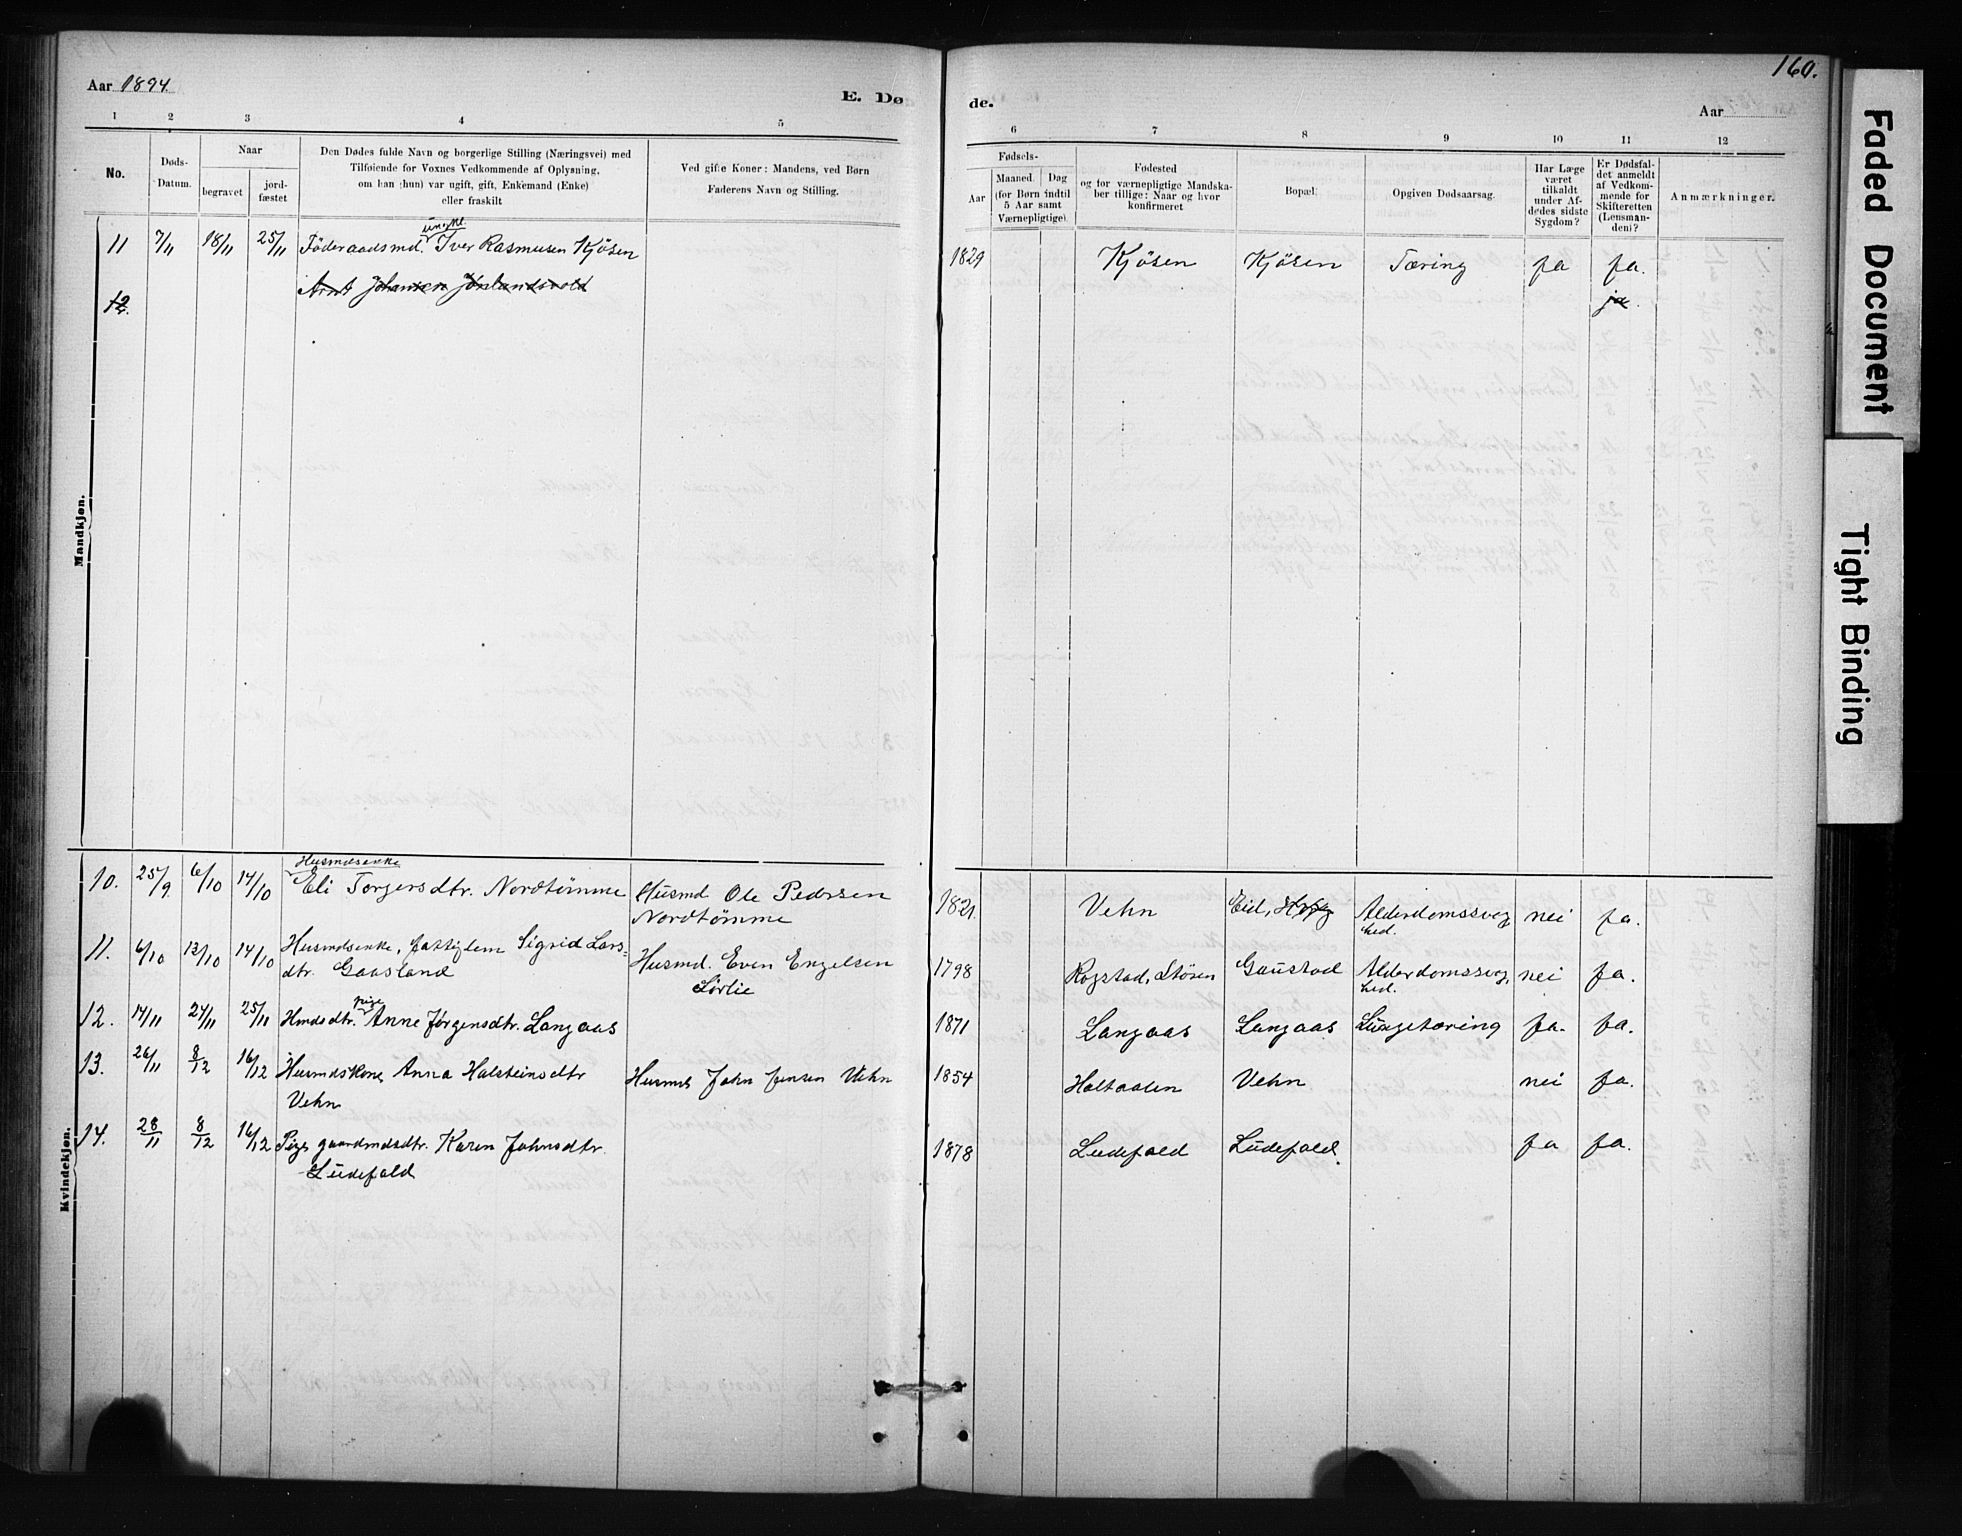 Aar 1894.
E. Dø
de.
Aar
160.
1 2 3 4 5 6 7 8 9 10 11 12
No.
Døds-
Datum.
Naar
begravet
jord-
fæstet
Den Dødes fulde Navn og borgerlige Stilling (Næringsvei) med
Tilføiende for Voxnes Vedkommende af Oplysning,
om han (hun) var ugift, gift, Enkemand (Enke)
eller fraskilt
Ved gifte Koner: Mandens, ved Børn
Faderens Navn og Stilling.
Fødsels-
Aar
Maaned. Dag
(for Børn indtil
5 Aar samt
Værnepligtige).
Fødested
og for værnepligtige Mandska-
ber tillige: Naar og hvor
konfirmeret
Bopæl.
Opgiven Dødsaarsag.
Har Læge
været
tilkaldt
under Af-
dødes sidste
Sygdom?
Er Dødsfal-
det anmeldt
af Vedkom-
mende for
Skifteretten
(Lensman-
den)?
Anmærkninger.
Mandkjøn.
11 7/11 18/11 25/11 Föderaadsmd. Iver Rasmusen Kjösen 1829 Kjösen Kjösen Tæring ja ja.
12. Arnt Johansen Jönlandsvold ja.
Kvindekjøn.
Husmdsenke
10. 25/9 6/10 14/10 Eli Torgersdtr. Nordtömme Husmd Ole Pedersen 1821 Vehn Eid, Alderdomssvag nei ja.
Nordtömme hed.
11. 6/10 13/10 14/10 Husmdsenke, fattiglem Sigrid Lars- Husmd. Even Engelsen 1798 Rogstad, Stören Gaustad Alderdomssvag, nei ja.
dtr. Gaasland Sörlie hed.
pige
12. 14/11 24/11 25/11 Hmdsdtr. Anne Jørgensdtr. Langaas 1871 Langaas Langaas Lungetæring ja. ja.
13. 26/11 8/12 16/12 Husmdskone Anna Halsteinsdtr Husmd John Jensen Vehn 1854 Holtaalen Vehn nei ja.
Vehn
14. 28/11 8/12 16/12 Pige gaardmdsdtr. Karen Johnsdtr. 1878 Ludefald Ludefald. ja ja.
Ludefald
Faded Document
Tight Binding